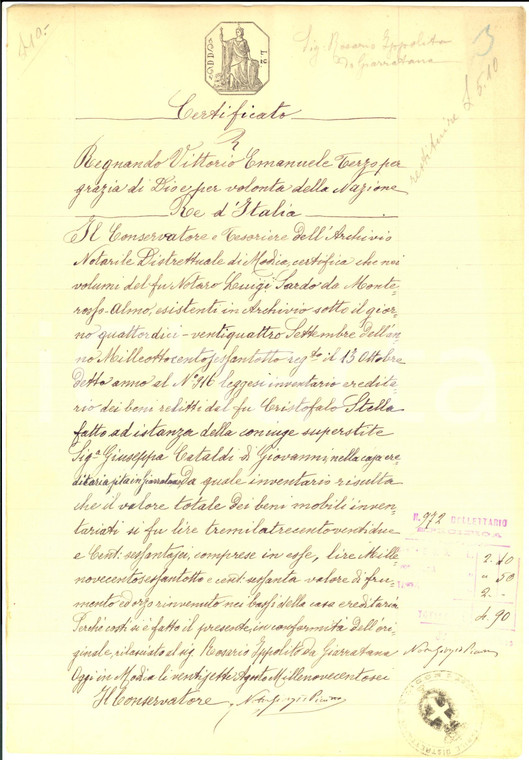 £ 10.-
Sig. Rosario Ippolito
da Giarratana
3
restituire £ 5.10
L 2
Certificato
Regnando Vittorio Emanuele Terzo per
grazia di Dio e per volontà della Nazione
Re d'Italia
Il Conservatore e Tesoriere dell'Archivio
Notarile Distrettuale di Modica, certifica che nei
volumi del fu Notaro Luigi Sardo da Monte=
rosso-Almo, esistenti in Archivio sotto il gior=
no quattordici-ventiquattro Settembre dell'an=
no Milleottocentosessantotto reg.to il 13 Ottobre
detto anno al N. leggesi inventario eredita=
rio dei beni relitti dal fu Cristofalo Stella
fatto ad istanza della coniuge superstite
Sig.a Giuseppa Cataldi di Giovanni, nella casa ere=
ditaria sita in Giarratana, da quale inventario risulta
che il valore totale dei beni mobili inven=
tariati si fu lire tremilatrecentoventidue
e Cent: sessantasei, comprese in esse, lire Mille
novecentosessantotto e cent: sessanta valore di fru=
mento ed orzo rinvenuto nei bassi della casa ereditaria
Perchè costi si è fatto il presente, in conformità dell'ori=
ginale, rilasciato al sig. Rosario Ippolito da Giarratana
Oggi in Modica li ventisette Agosto Millenovecentosei
Il Conservatore
N. 972 BOLLETTARIO
SPECIFICA
2.40
" 50
2.-
4.90